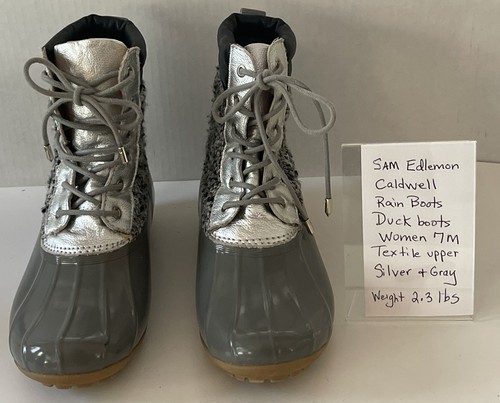 SAM Edlemon
Caldwell
Rain Boots
Duck boots
Women 7M
Textile upper
Silver + Gray
Weight 2.3 lbs